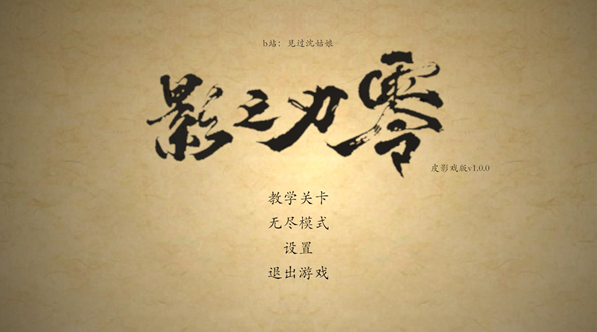 b站：见过沈姑娘
影之刃零
皮影戏版v1.0.0
教学关卡
无尽模式
设置
退出游戏